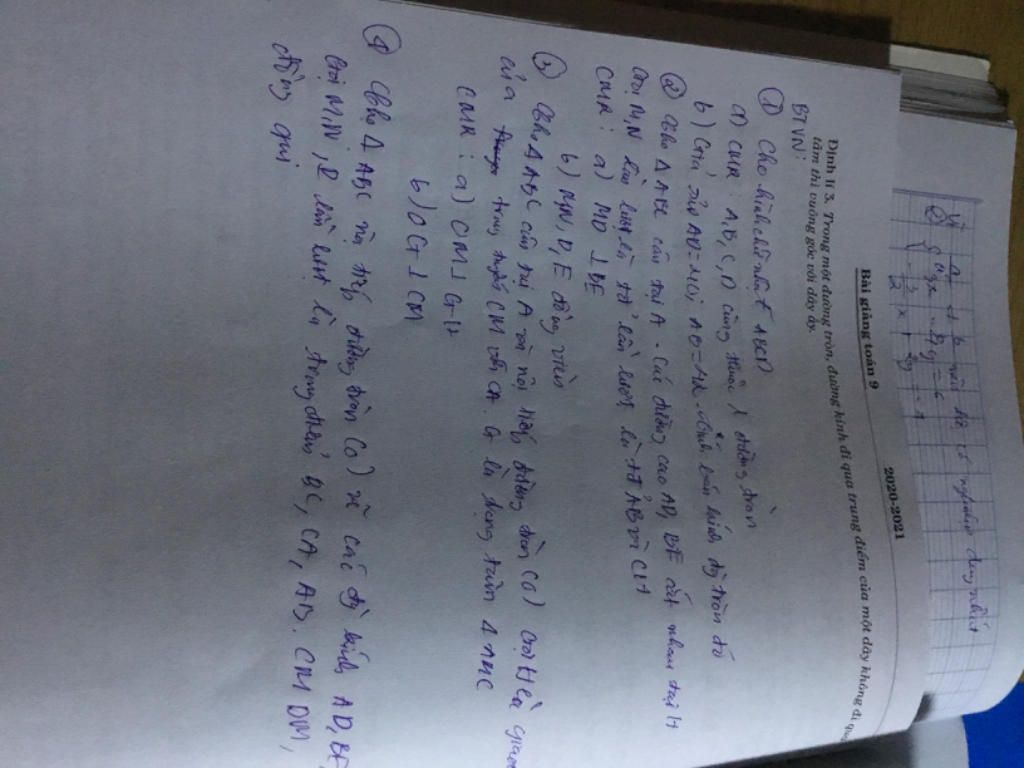 Bài giảng toán 9
2020-2021
Định lí 3. Trong một đường tròn, đường kính đi qua trung điểm của một dây không đi qua
tâm thì vuông góc với dây ấy.
BTVN:
① Cho hình chữ nhật ABCD
a) CMR A,B,C,D cùng thuộc 1 đường tròn
b) Giả sử AD= AB= tính bán kính đg tròn đó
② Cho Δ ABC cân tại A. Các đường cao AD, BE cắt nhau tại H
Gọi M,N lần lượt là tđ AB và CH
CMR: a) MD ⊥ BE
b) M,N,D,E đồng viên
③ Cho Δ ABC cân tại A và nội tiếp đường tròn (O) Gọi H là giao
của trung tuyến CM với OA. G là trọng tâm Δ AMC
CMR: a) OM ⊥ GH
b) OG ⊥ CM
④ Cho Δ ABC nội tiếp đường tròn (O) vẽ các đg kính AD, BE,
Gọi M,N,P lần lượt là trung điểm BC, CA, AB. CM DM,
đồng qui
nghiệm duy nhất